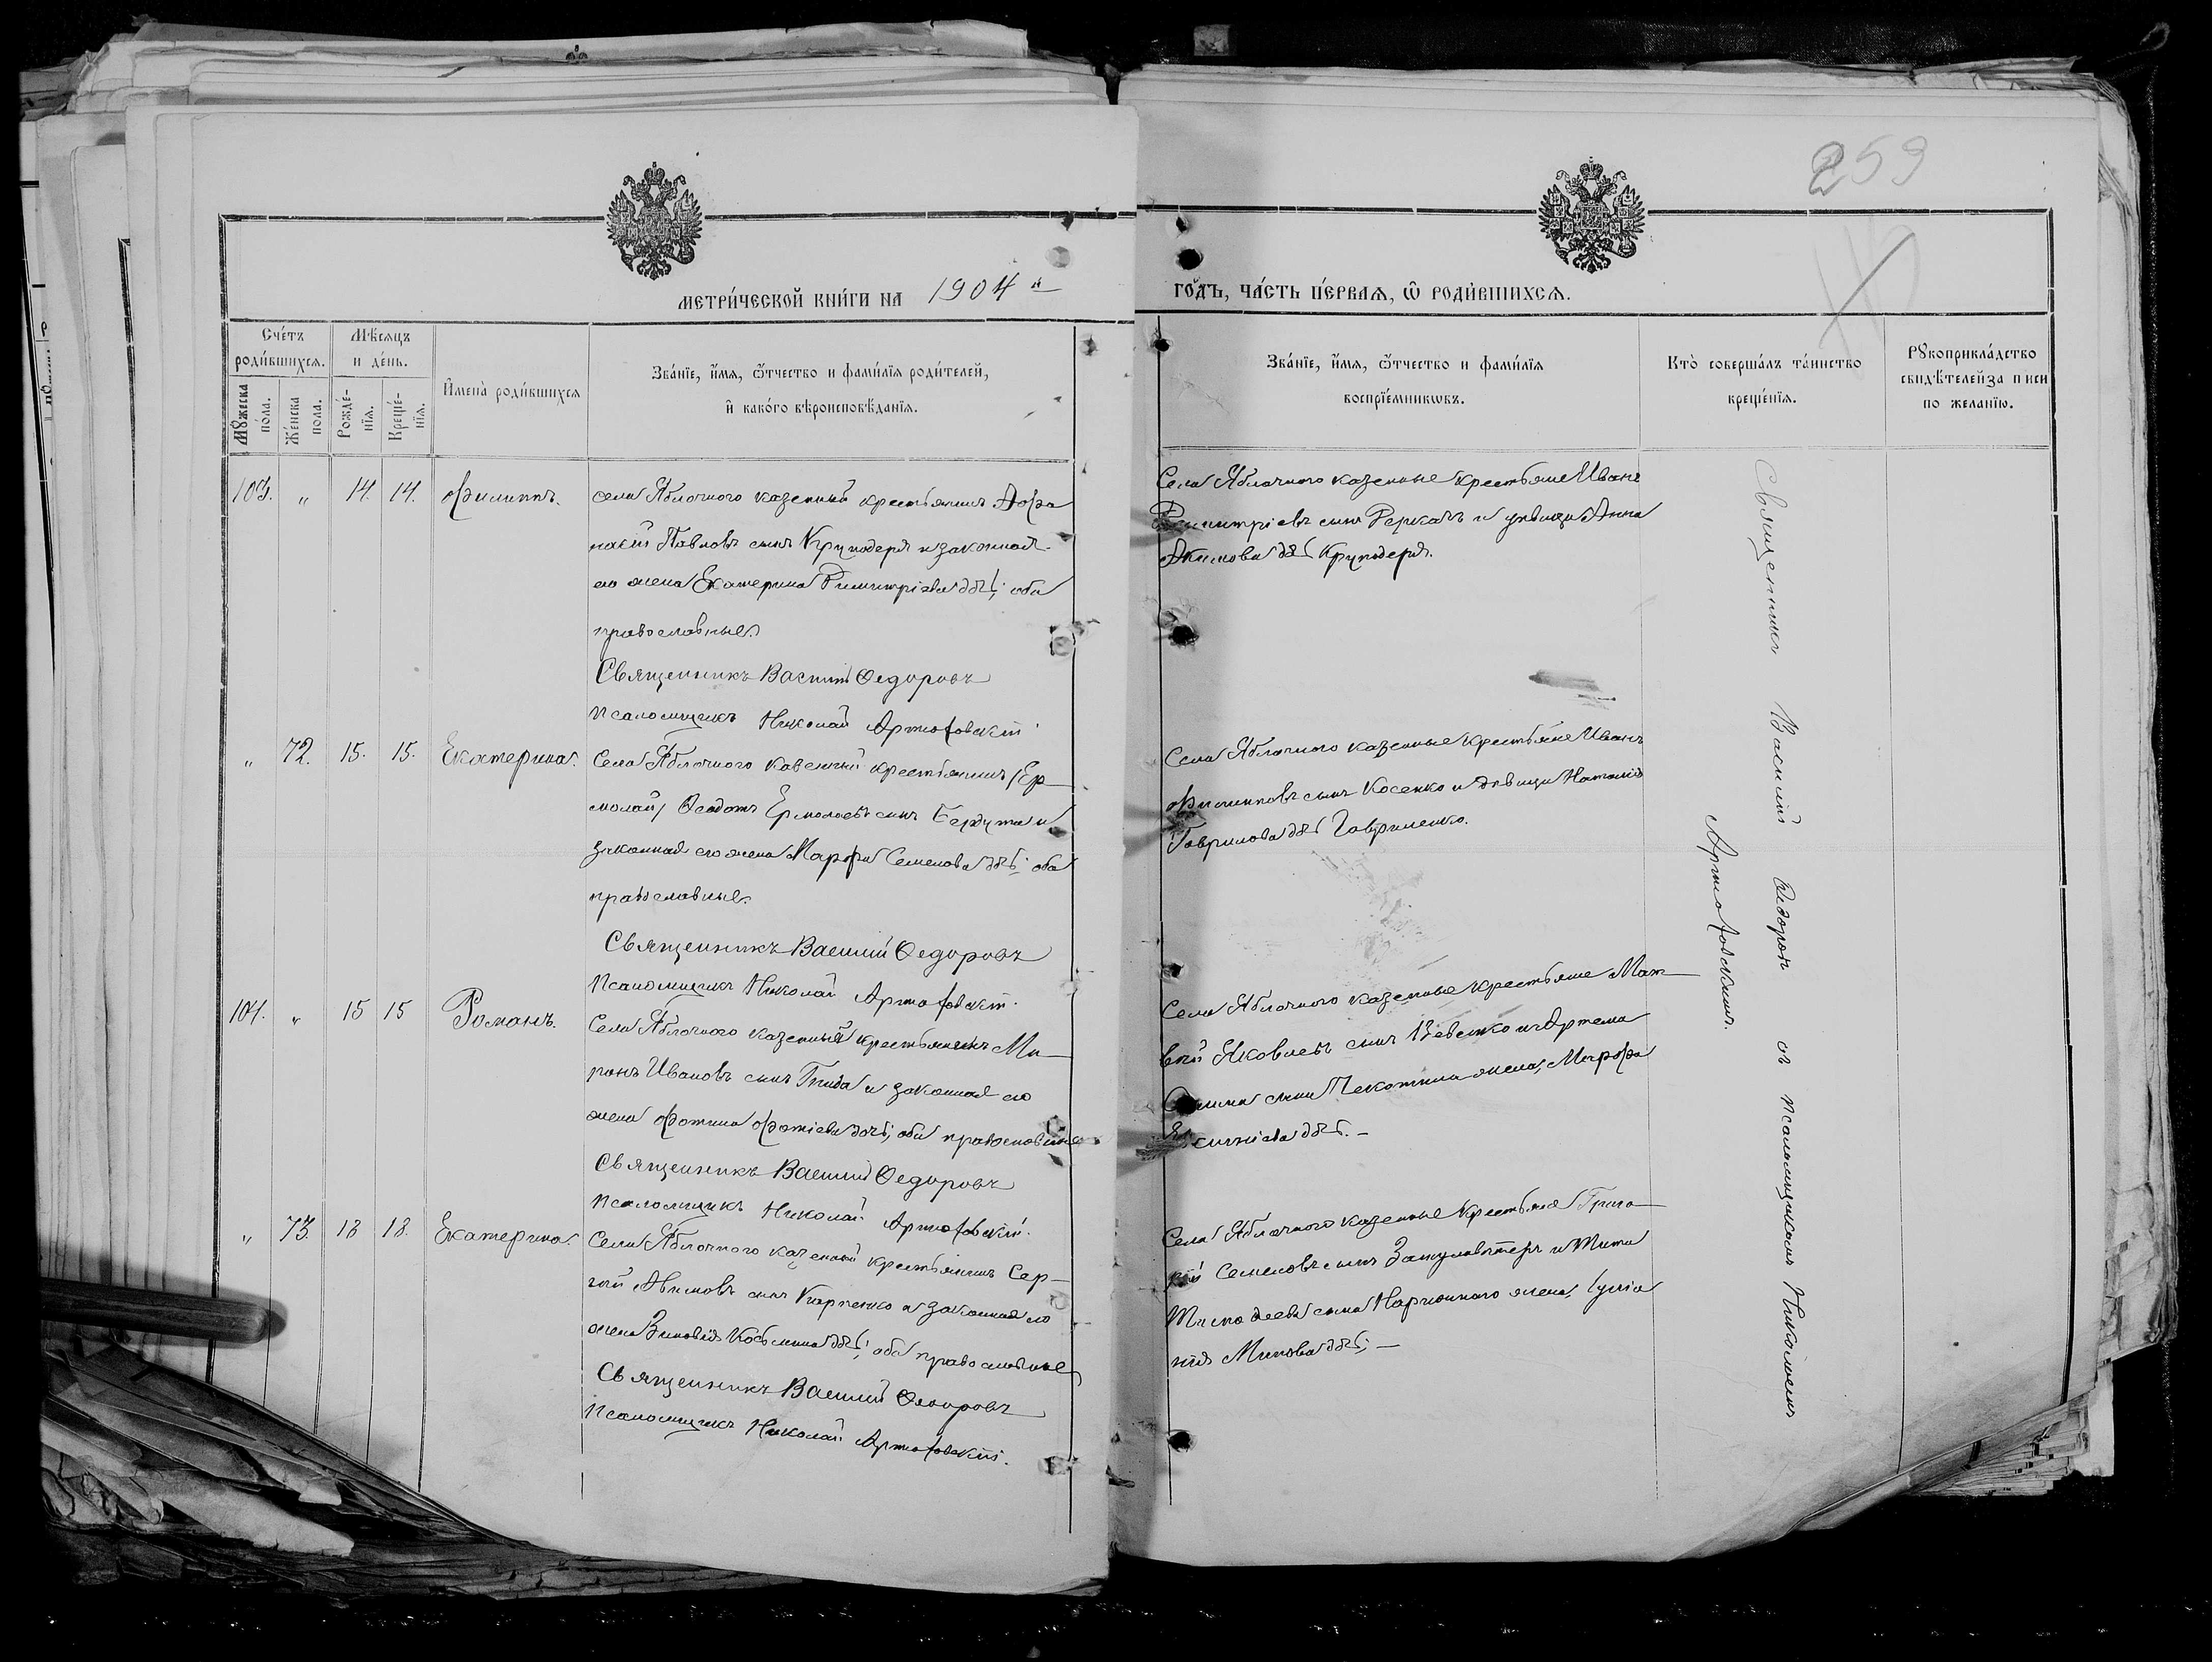 259
МЕТРИ́ЧЕСКОЙ КНИ́ГИ НА 1904 й
ГО́ДЪ, ЧА́СТЬ ПЕ́РВАѦ, Ѿ РОДИ́ВШИХСѦ.
Сче́тъ
роди́вшихсѧ.
Мѣ́сѧцъ
и де́нь.
Мꙋ́жеска
по́ла.
Же́нска
пола.
Рожде́-
нїѧ.
Креще́-
нїѧ.
И҆мена̀ роди́вшихсѧ
Зва́нїе, и҆́мѧ, ѻ҆́тчество и фами́лїѧ роди́телей,
и҆ како́го вѣроисповѣ́данїѧ.
Зва́нїе, и҆́мѧ, ѻ҆́тчество и фами́лїѧ
воспрїе́мникѡвъ.
Кто̀ соверша́лъ та́инство
креще́нїѧ.
Рꙋкоприкла́дство
свидѣ́телей записи
по жела́нїю.
103. " 14. 14. Филиппъ.
села Яблочного казенный крестьянинъ Афа
насій Павловъ сынъ Круподеря и законная
его жена Екатерина Димитріева дочь; оба
православные.
Священникъ Василій Ѳедоровъ
Псаломщикъ Николай Артюховскій
Села Яблочного казенные крестьяне Иванъ
Димитріевъ сынъ Деркачъ и девица Анна
Акимова дочь Круподеря.
" 72. 15. 15. Екатерина.
Села Яблочного казенный крестьянинъ /Ер
молай/ Ѳеодотъ Ермолаевъ сынъ и
законная его жена Марфа Семенова дочь; оба
православные.
Священникъ Василій Ѳедоровъ
Псаломщикъ Николай Артюховскій.
Села Яблочного казенные крестьяне Иванъ
Филипповъ сынъ Косенко и девица Наталія
Гаврилова дочь Гавриленко.
104. " 15 15 Романъ.
Села Яблочного казенный крестьянинъ Ми-
ронъ Ивановъ сынъ и законная его
жена Фотина Фотіева дочь; оба православные
Священникъ Василій Ѳедоровъ
Псаломщикъ Николай Артюховскій.
Села Яблочного казенные крестьяне Мат-
вей Яковлевъ сынъ и Артема
сына жена, Марфа
дочь. —
" 73. 18 18. Екатерина.
Села Яблочного казенный крестьянинъ Сер-
гей сынъ и законная его
жена Зиновія Косьмина дочь; оба православные
Священникъ Василій Ѳедоровъ
Псаломщикъ Николай Артюховскій.
Села Яблочного казенные крестьяне Григо-
рій Семеновъ сынъ и Тита
сына жена,
дочь; —
Священникъ Василій Ѳедоровъ съ псаломщикомъ Николаемъ
Артюховскимъ.